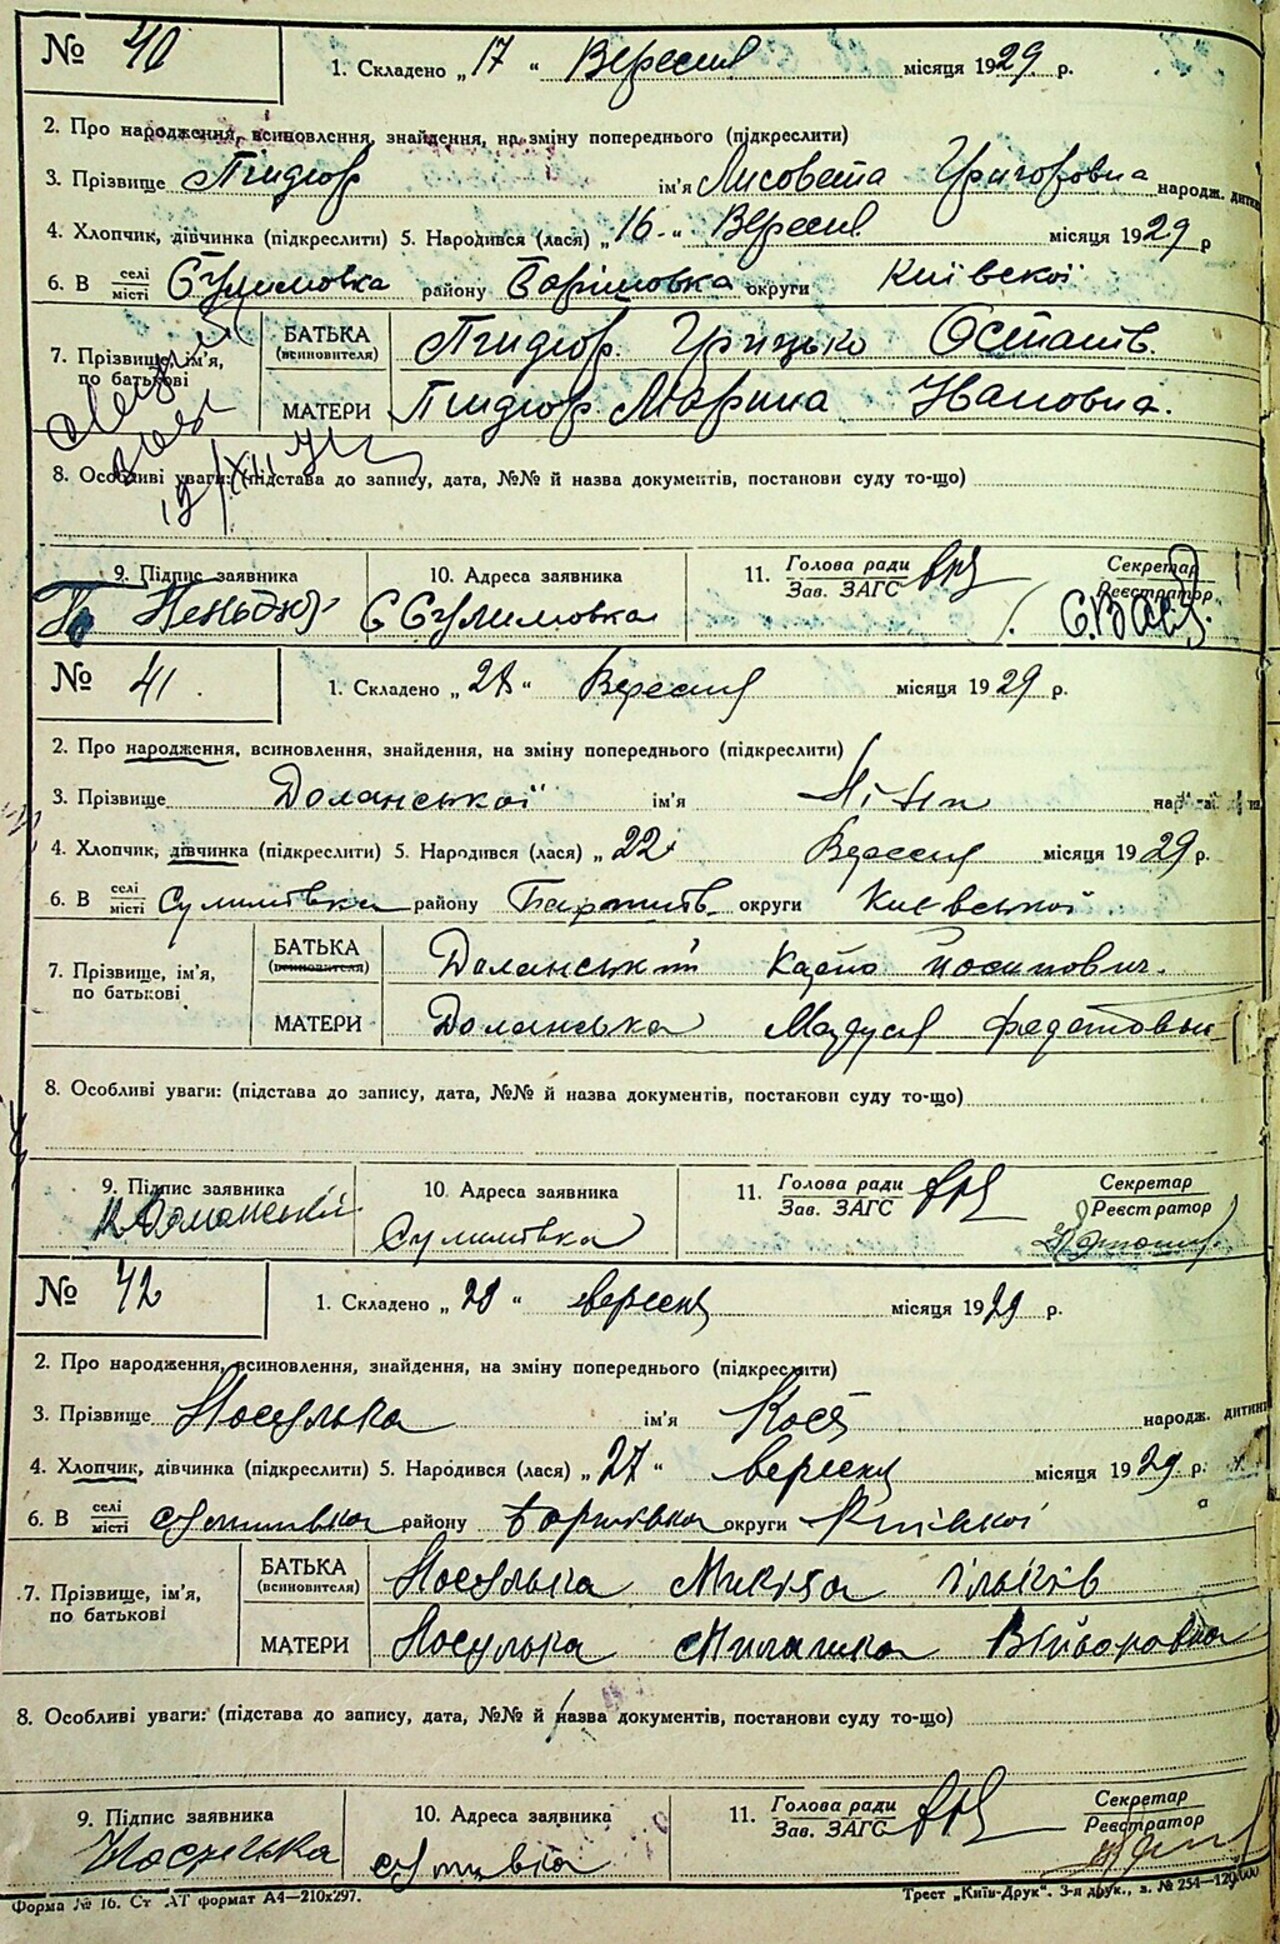 № 40
1. Складено „ 17 “ Вересня місяця 1929 р.
2. Про народження, всиновлення, знайдення, на зміну попереднього (підкреслити)
3. Прізвище ім'я Лисовета Григоровна народж. дитини
4. Хлопчик, дівчинка (підкреслити) 5. Народився (лася) „ 16 “ Вересня місяця 1929 р
6. В селі місті Сулимовка району Борішовка округи Київскої
7. Прізвище, ім'я, по батькові
БАТЬКА (всиновителя) Грицько Остапов.
МАТЕРИ Марина Ивановна.
8. Особливі уваги: (підстава до запису, дата, №№ й назва документів, постанови суду то-що)
9. Підпис заявника
10. Адреса заявника
С Сулимовка
11. Голова ради Зав. ЗАГС
Секретар Реєстратор
№ 41.
1. Складено „ 28 “ Вересня місяця 1929 р.
2. Про народження, всиновлення, знайдення, на зміну попереднього (підкреслити)
3. Прізвище Доланської ім'я
4. Хлопчик, дівчинка (підкреслити) 5. Народився (лася) „ 22 Вересня місяця 1929 р.
6. В селі місті Сулимівка району округи Києвської
7. Прізвище, ім'я, по батькові
БАТЬКА (всиновителя) Доланський Йосипович.
МАТЕРИ Доланська Маруся Федотовьн
8. Особливі уваги: (підстава до запису, дата, №№ й назва документів, постанови суду то-що)
9. Підпис заявника
10. Адреса заявника
Сулимівка
11. Голова ради Зав. ЗАГС
Секретар Реєстратор
№ 42
1. Складено „ 28 “ вересня місяця 1929 р.
2. Про народження, всиновлення, знайдення, на зміну попереднього (підкреслити)
3. Прізвище Носулька ім'я Костя народж. дитини
4. Хлопчик, дівчинка (підкреслити) 5. Народився (лася) „ 27 “ вересня місяця 1929 р.
6. В селі місті Сулимівка району округи
7. Прізвище, ім'я, по батькові
БАТЬКА (всиновителя) Носулька Микита Ільків
МАТЕРИ Носулька Милашка
8. Особливі уваги: (підстава до запису, дата, №№ й назва документів, постанови суду то-що)
9. Підпис заявника
Носулька
10. Адреса заявника
11. Голова ради Зав. ЗАГС
Секретар Реєстратор
Форма № 16. Ст АТ формат А4—210х297.
Трест „Київ-Друк“. 3-я друк., з. № 254—120,000